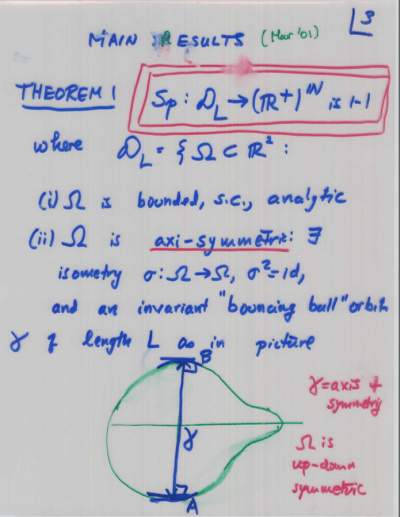 L3
MAIN RESULTS (Mar '01)
THEOREM 1
Sp : 𝒟_L → (ℝ⁺)^ℕ is 1-1
where 𝒟_L = { Ω ⊂ ℝ² :
(i) Ω is bounded, s.c., analytic
(ii) Ω is axi-symmetric: ∃
isometry σ: Ω → Ω, σ² = id,
and an invariant "bouncing ball" orbit
γ of length L as in picture
B
γ = axis of
symmetry
γ
Ω is
up-down
symmetric
A